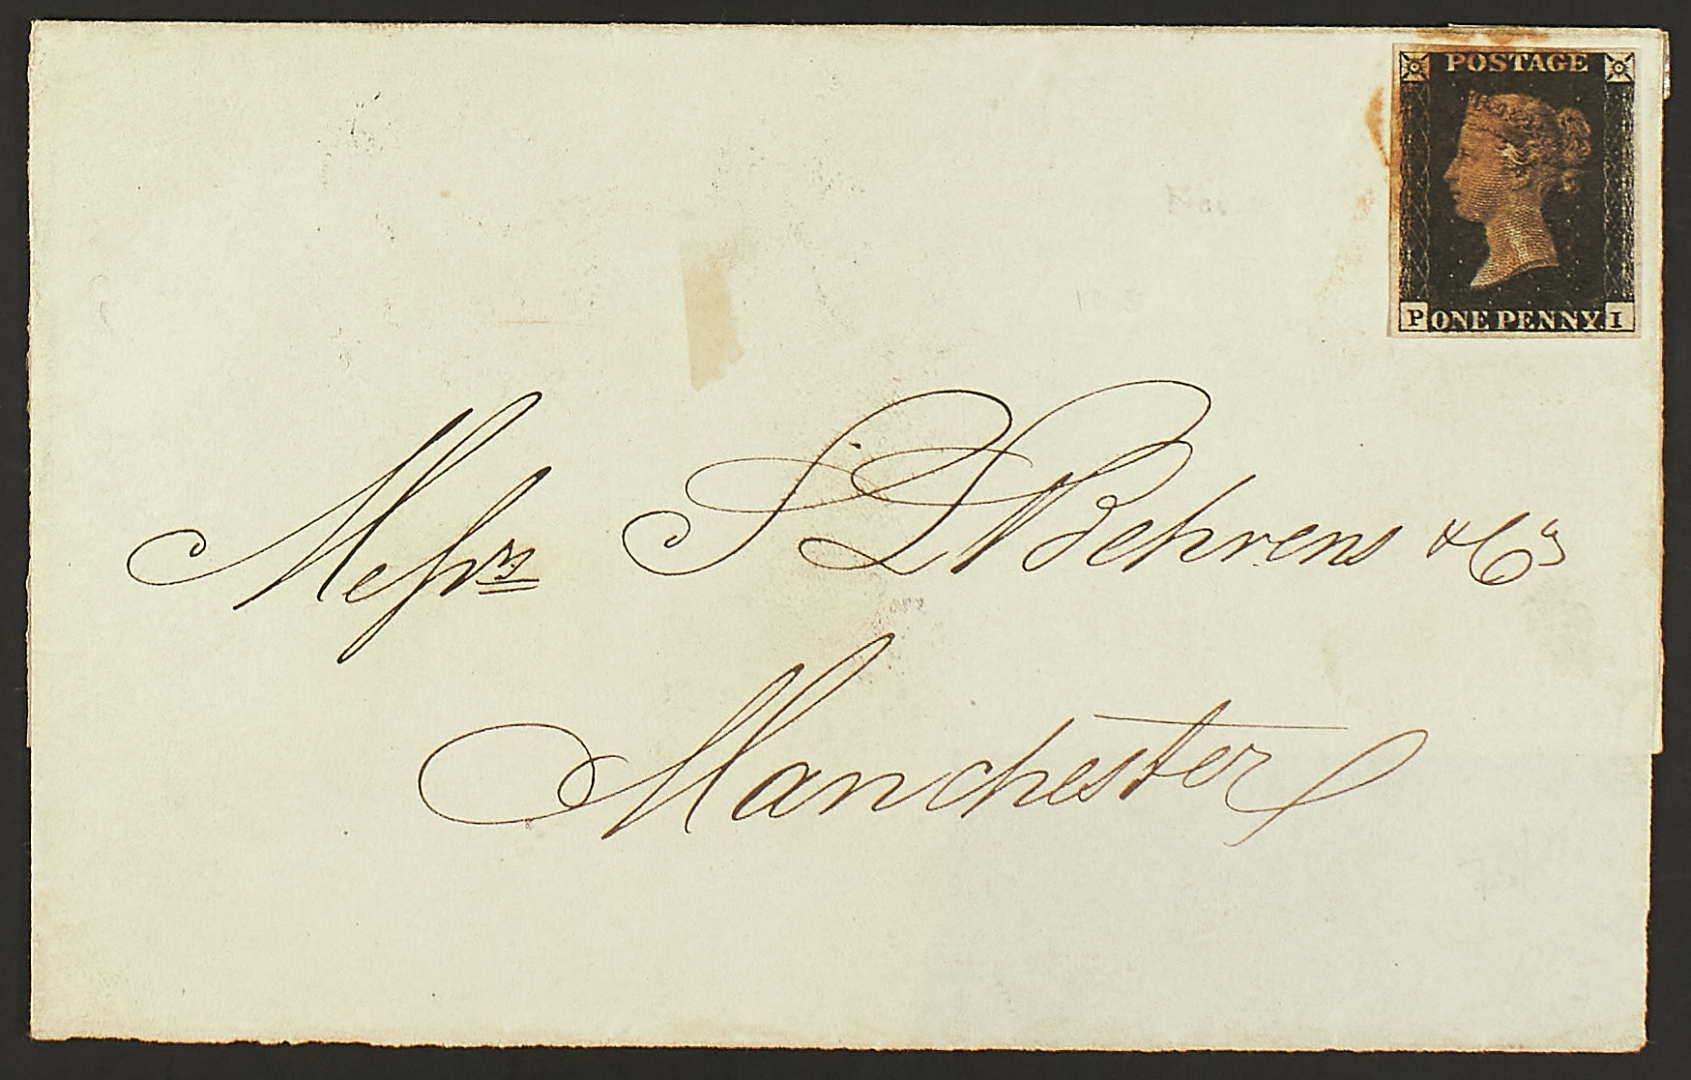 POSTAGE
P ONE PENNY. I
Messrs S L Behrens & Co
Manchester